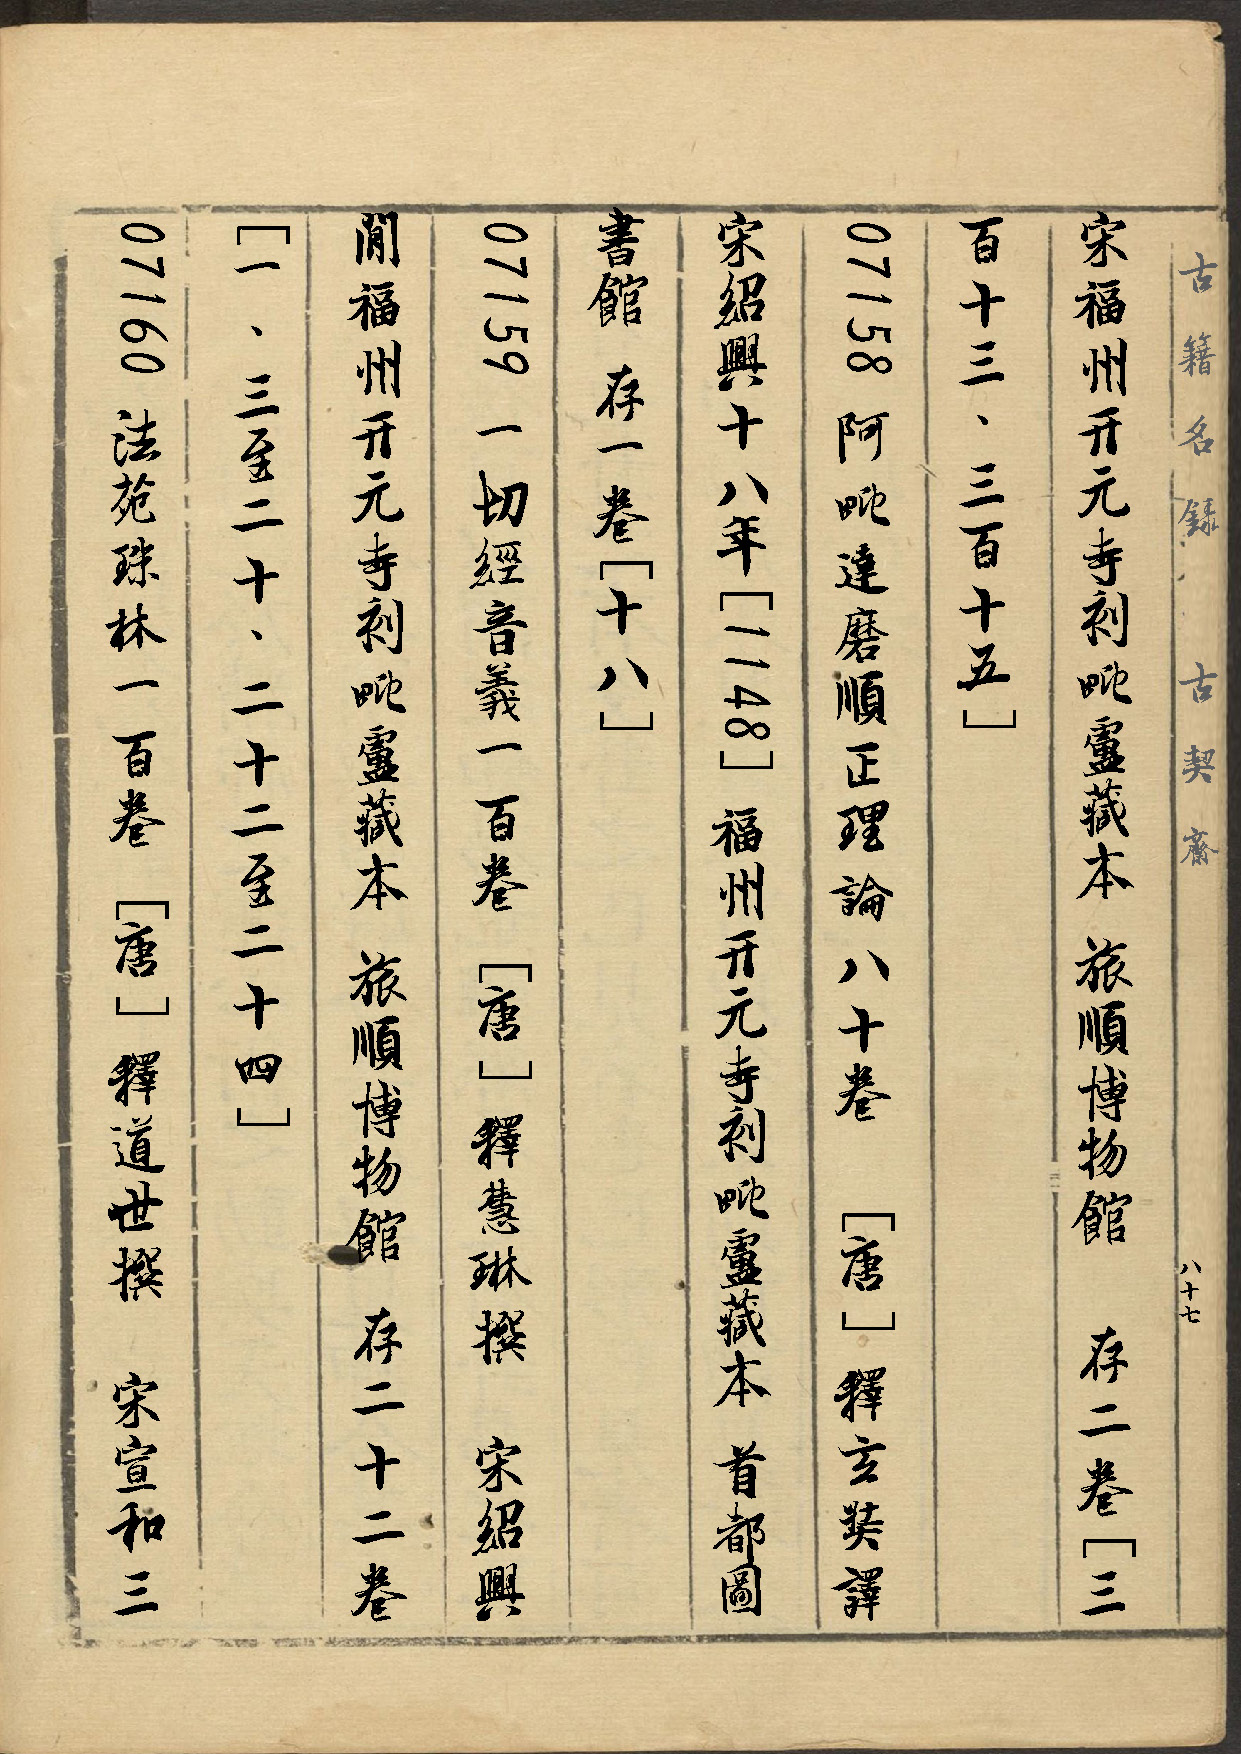 古籍名錄 古契齋
八十七
宋福州开元寺刻毗盧藏本 旅順博物館 存二卷[三
百十三、三百十五]
07158 阿毗達磨順正理論八十卷 [唐]釋玄奘譯
宋紹興十八年[1148]福州开元寺刻毗盧藏本 首都圖
書館 存一卷[十八]
07159 一切經音義一百卷 [唐]釋慧琳撰 宋紹興
閒福州开元寺刻毗盧藏本 旅順博物館 存二十二卷
[一、三至二十、二十二至二十四]
07160 法苑珠林一百卷 [唐]釋道世撰 宋宣和三